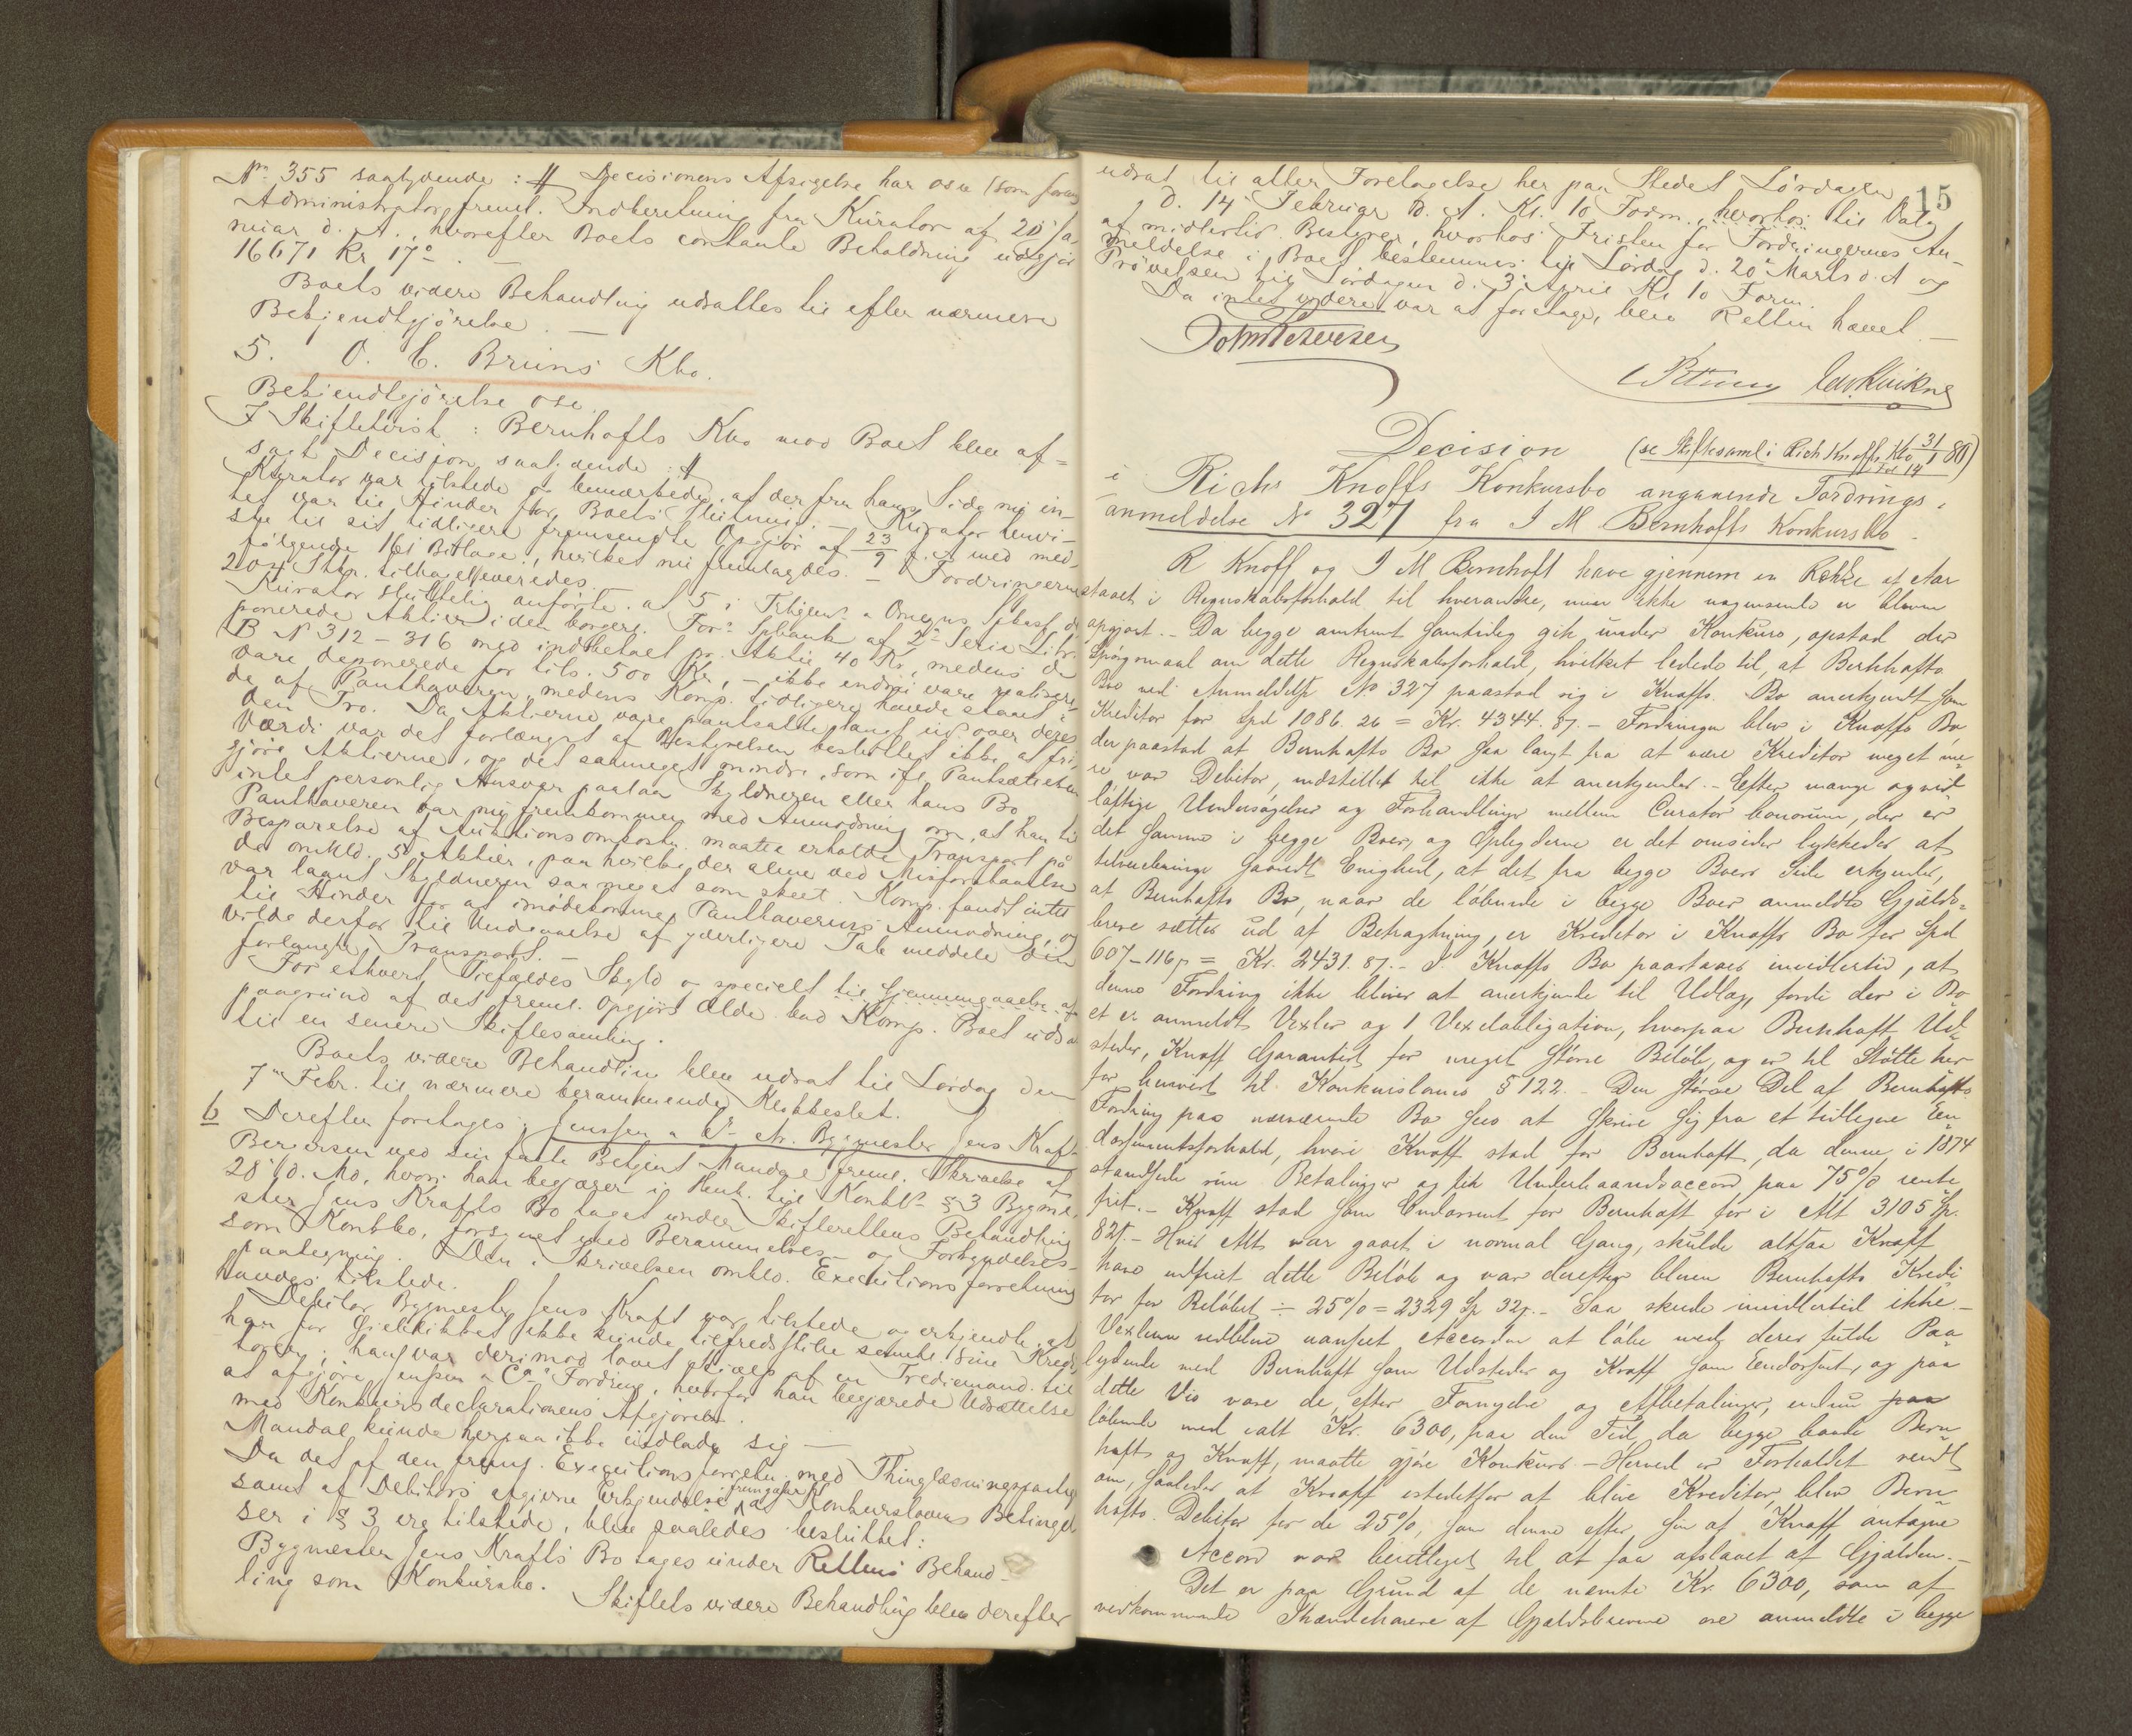 No 355 saalydende: # Decisionens Afsigelse har osv (som foran)
Administrator freml. Indberetning fra Kurator af 20' Ja-
nuar d. A., hvorefter Boets contante Beholdning udgjör
16671 Kr 17 ö. —
Boets videre Behandling udsattes til efter nærmere
Bekjendtgjörelse. —
5. O. C. Bruns Kbo.
Bekjendtgjörelse osv.
I Skiftetvist: Bernhofts Kbo mod Boet blev af-
sagt Decisjon saalydende: #
Kurator var tilstede og bemærkede, at der fra hans Side nu in-
tet var til Hinder for Boets Slutning. — Kurator henvi-
ste til sit tidligere fremsendte Opgjör af 23/9 f. A med med-
fölgende 161 Billage, hvilket nu fremlagdes. — Fordringerne
2 og Skp. tilbageleveredes.
Kurator sluttelig anförte at 5 i Tthjems & Omegns Spkasse de-
ponerede Aktier i den borgerl. For. Spbank af 2' Serie Litr.
B No 312 – 316 med indbetalt pr. Aktie 40 Kr, medens de
vare deponerede for tils. 500 Kr, – ikke endnu vare realisere-
de af Panthaveren, medens Komp. tidligere havde staaet i
den Tro. Da Aktierne vare pantsatte langt ud over deres
Værdi var det forlængst af Bestyrelsen besluttet ikke at fri
gjöre Aktierne, og det saameget mindre, som ifl. Pantsættelsen
intet personlig Ansvar paalaa Skyldneren eller hans Bo
Panthaveren var nu fremkommen med Anmodning om, at han til
Besparelse af Auktionsomkostn. maatte erholde Transport på
de omhld. 5 Aktier, paa hvilke der alene ved Misforstaaelse
var laant Skyldneren saa meget som skeet. Komp. fandt intet
til Hinder for at imödekomme Panthaverens Anmodning, og
vilde derfor til Undgaaelse af yderligere Tab meddele den
forlangte Transport. —
For ethvert Tilfældes Skyld og specielt til Gjennemgaaelse af
paagrund af det freml. Opgjörs Ælde bad Komp. Boet udsat
til en senere Skiftesamling.
Boets videre Behandling blev udsat til Lördag den
7de Febr. til nærmere berammende Klokkeslet.
6 Derefter foretages i Jenssen & Co ctr. Bygmester Jens Kraft
Berersen ved sin faste Betjent Mandal freml. Skrivelse af
28'/d. Md., hvori han begjærer i Henh. til Konkl § 3 Bygme-
ster Jens Krafts Bo taget under Skifterettens Behandling
som Konkbo, forsynet med Berammelses- og Forkyndelses-
paategning. Den i Skrivelsen omhld. Executionsforretning
havdes tilstede.
Debitor Bygmester Jens Kraft var tilstede og erkjendte, at
han for Öieblikket ikke kunde tilfredsstille samtl. sine Kredi
torer; han var derimod lovet Hjælp af en Trediemand til
at afgjöre Jenssen & Co's Fordring, hvorfor han begjærede Udsættelse
med Konkursdeclarationens Afgjörelse.
Mandal kunde herpaa ikke indlade sig —
Da det af den freml. Executionsforretn. med Thinglæsningspaateg
samt af Debitors afgivne Erkjendelse fremgaar at Konkurslovens Betingel
ser i § 3 ere tilstede, blev saaledes besluttet:
Bygmester Jens Krafts Bo tages under Rettens Behand-
ling som Konkursbo.
Skiftets videre Behandling blev derefter
15
udsat til atter Foretagelse her paa Stedet Lördagen
d. 14' Februar d. A. Kl. 10 Form., hvorhos til Valg
af midlertid. Bestyrer, hvorhos Fristen for Fordringernes An-
meldelse i Boet bestemmes til Lördag d. 20' Marts d. A og
Prövelsen til Lördagen d. 3' April Kl 10 Form.
Da intet videre var at foretage, blev Retten hævet. —
Decision (se Skiftesaml i Rich Knoffs Kbo 31/1 80)
Fol 14
i Richs Knoffs Konkursbo angaaende Fordrings-
anmeldelse No 327 fra I M Bernhofts Konkursbo.
R Knoff og I M Bernhoft have gjennem en Række af Aar
staaet i Regnskabsforhold til hverandre, men ikke nogensinde er bleven
opgjort. – Da begge omtrent samtidig gik under Konkurs, opstod der
Spörgsmaal om dette Regnskabsforhold, hvilket ledede til, at Bernhofts
Bo ved Anmeldelse No 327 paastod sig i Knoffs Bo anerkjendt som
Kreditor for Spd 1086. 26 = Kr. 4344. 87. – Fordringen blev i Knoffs Bo
der paastod at Bernhofts Bo saa langt fra at være Kreditor meget me-
re var Debitor, indstillet til ikke at anerkjendes. – Efter mange og vid
löftige Undersögelser og Forhandlinger mellem Curator bonorum, der er
det samme i begge Boer, og Opbyderne er det omsider lykkedes at
tilveiebringe saavidt Enighed, at det fra begge Boers Side erkjendes,
at Bernhofts Bo, naar de löbende i begge Boer anmeldte Gjælds-
breve sættes ud af Betragtning, er Kreditor i Knoffs Bo for Spd
607–116 p = Kr. 2431. 87. – I Knoffs Bo paastaaes imidlertid, at
denne Fordring ikke bliver at anerkjende til Udlæg, fordi der i Bo
et er anmeldt Vexler og 1 Vexelobligation, hvorpaa Bernhoft Ud-
steder, Knoff Garantist for meget större Belöb, og er til Stötte her-
for henvist til Konkurslovens § 122. – Den större Del af Bernhofts
Fordring paa nærværende Bo sees at skrive sig fra et tidligere En-
dossementsforhold, hvori Knoff stod for Bernhoft, da denne i 1874
standsede sine Betalinger og fik Underhaandsaccord paa 75% rente
frit. – Knoff stod som Endossent for Bernhoft for i Alt 3105 Sp.
82 s. – Hvis Alt var gaaet i normal Gang, skulde altsaa Knoff
have indfriet dette Belöb og var derefter bleven Bernhofts Kredi
tor for Belöbet ÷ 25% = 2329 Sp 32 s. – Saa skede imidlertid ikke. –
Vexlerne vedbleve uanseet Accorden at löbe med deres fulde Paa
lydende med Bernhoft som Udsteder og Knoff som Endossent, og paa
dette Vis vare de, efter Fornyelse og Afbetalinger, endnu
löbende med ialt Kr. 6300, paa den Tid, da begge baade Bern-
hoft og Knoff, maatte gjöre Konkurs. – Herved er Forholdet vendt
om, saaledes at Knoff istedetfor at blive Kreditor, blev Bern-
hofts Debitor for de 25%, som denne efter sin af Knoff antagne
Accord var berettiget til at faa afslaaet af Gjælden. –
Det er paa Grund af de nævnte Kr. 6300, som af
vedkommende Ihændehavere af Gjældsbrevene ere anmeldte i begge